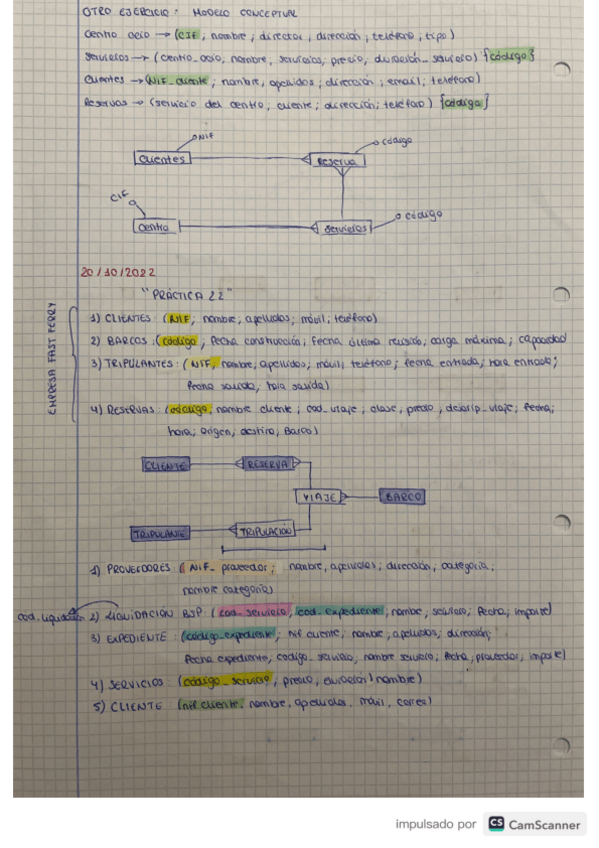 OTRO EJERCICIO: MODELO CONCEPTUAL
Centro ocio → (CIF; nombre; director, dirección; teléfono; tipo)
Servicios → (centro_ocio, nombre, servicios; precio, duración_servicio) {código}
Clientes → (NIF_cliente; nombre, apellidos; dirección; email; teléfono)
Reservas → (servicio del centro; cliente; dirección; teléfono) {código}
NIF
código
Clientes
Reserva
CIF
código
Centro
Servicios
20/10/2022
"PRÁCTICA 22"
EMPRESA FAST FERRY
1) CLIENTES: (NIF; nombre; apellidos; móvil; teléfono)
2) BARCOS: (código, fecha construcción; fecha última revisión; carga máxima; capacidad
3) TRIPULANTES: (NIF, nombre, apellidos, móvil, teléfono; fecha entrada; hora entrada;
fecha salida, hora salida)
4) RESERVAS: (código, nombre cliente; cod_viaje, clase, precio, descrip_viaje; fecha;
hora; origen, destino, Barco)
CLIENTE
RESERVA
VIAJE
BARCO
TRIPULANTE
TRIPULACIÓN
1) PROVEEDORES: (NIF_proveedor; nombre, apellidos; dirección, categoría;
nombre categoría)
cod. liquidación 2) LIQUIDACIÓN BSP (cod_servicio, cod_expediente, nombre, servicio, fecha, importe)
3) EXPEDIENTE: (código_expediente; nif cliente; nombre, apellidos, dirección;
fecha expediente, codigo_servicio, nombre servicio; fecha, proveedor, importe)
4) SERVICIOS: (código_servicio, precio, duración, nombre)
5) CLIENTE (nif cliente, nombre, apellidos, mail, correo)
impulsado por CS CamScanner